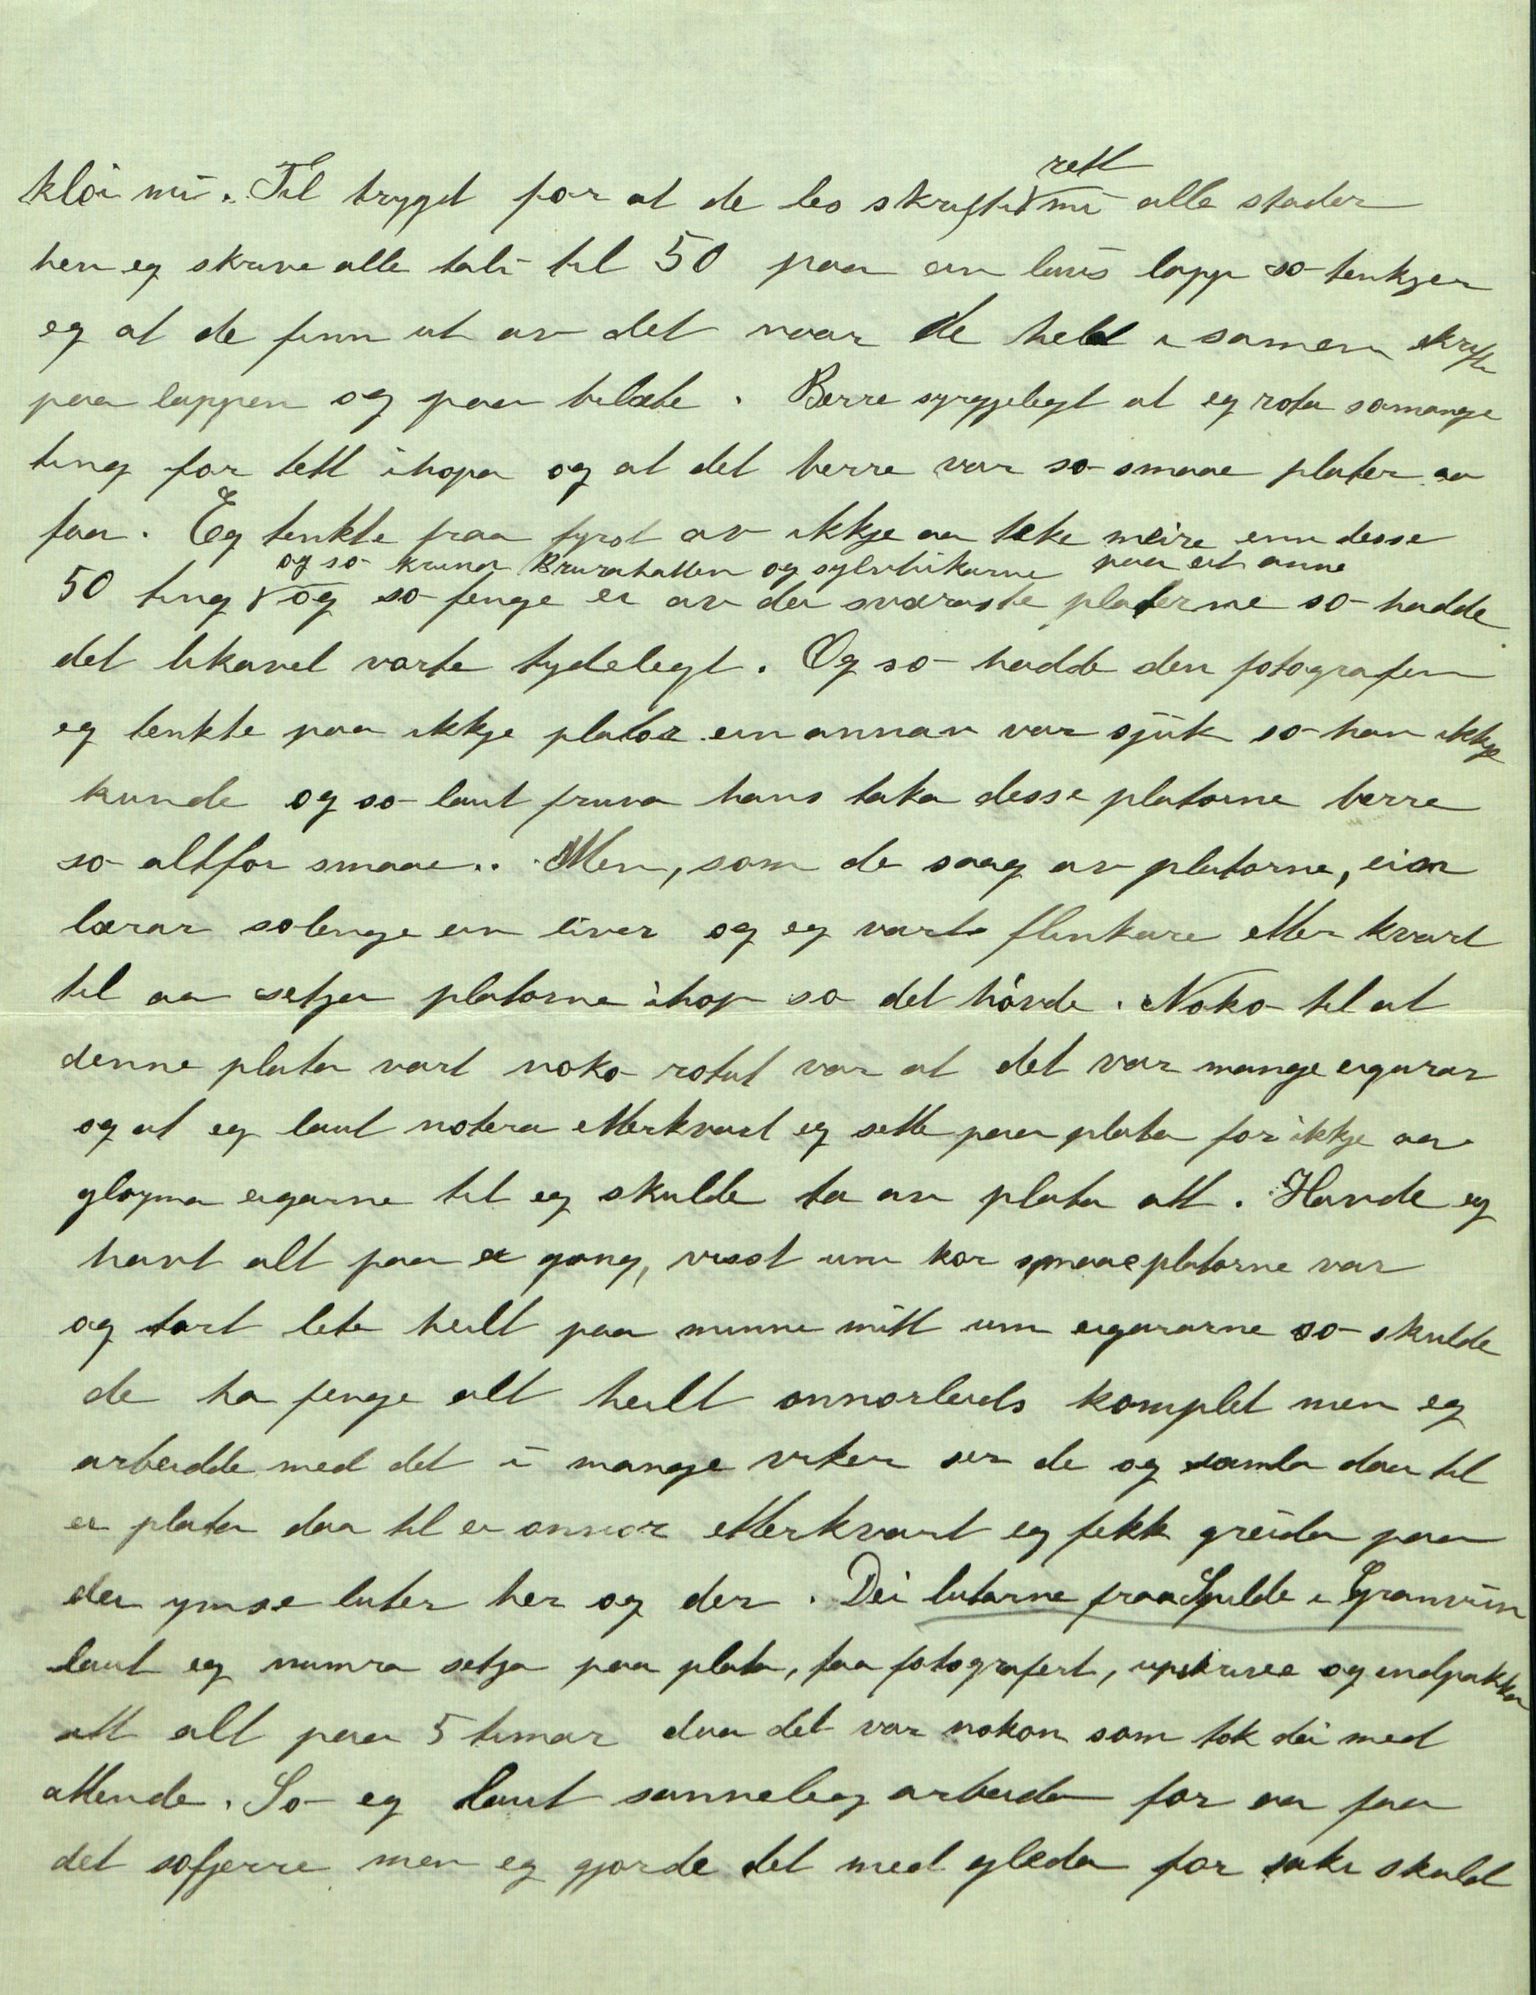 klòi mi. Til trygd for at de les skrifti rett mi alle stader
hev eg skreve alle tali til 50 paa ein laus lapp so tenkjer
eg at de finn ut av det naar de held i samen skrifti
paa lappen og paa bilæte. Berre syrgjelegt at eg rota somange
ting for tett ihopa og at det berre var so smaae plater aa
faa. Eg tenkte fraa fyrst av ikkje aa teke meire enn desse
og so kruna Brurahatten og sylvbikarne paa eit anne
50 ting og so fenge ei av dei sværaste platerne so hadde
det likavel vorte tydelegt. Og so hadde den fotografen
eg tenkte paa ikkje plator ein annan var sjuk so han ikkje
kunde og so laut fruva hans taka desse platorne berre
so altfor smaae.. Men, som de saag av platorne, ein
lærar solenge ein liver og eg vart flinkare etter kvart
til aa setja platorne ihop so det hövde. Noko til at
denne plata vart noko rotut var at det var mange eigarar
og at eg laut notera etterkvart eg sette paa plata for ikkje aa
gløyma eigarne til eg skulde ta av plata att. Havde eg
havt alt paa ei gong, visst um kor smaae platorne var
og tort lete heilt paa minne mitt um eigararne so skulde
de ha fenge alt heilt annarleids komplet men eg
arbeidde med det i mange viker ser de og samla daa til
ei plata daa til ei annor etterkvart eg fekk greida paa
dei ymse luter her og der. Dei lutarne fraa Spilde i Granvin
laut eg numra setja paa plata, faa fotografert, upskrivee og indpakka
att alt paa 5 timar daa det var nokon som tok dei med
attende. So eg laut sanneleg arbeida for aa faa
det sofjerre men eg gjorde det med gleda for saki skuld